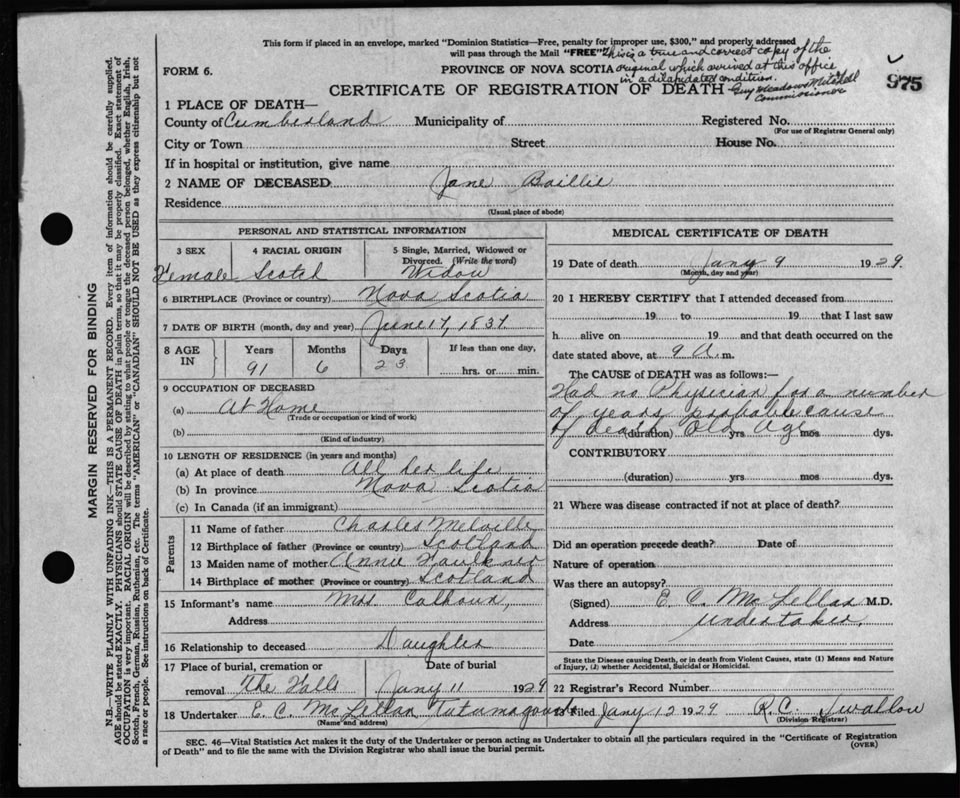 This form if placed in an envelope, marked "Dominion Statistics—Free, penalty for improper use, $300," and properly addressed
will pass through the Mail "FREE" This is a true and correct copy of the
FORM 6. PROVINCE OF NOVA SCOTIA original which arrived at this office
in a dilapidated condition.
CERTIFICATE OF REGISTRATION OF DEATH Guy Meadows Mitchell
Commissioner
975
1 PLACE OF DEATH—
County of Cumberland Municipality of Registered No.
(For use of Registrar General only)
City or Town Street House No.
If in hospital or institution, give name
2 NAME OF DECEASED Jane Baillie
Residence
(Usual place of abode)
PERSONAL AND STATISTICAL INFORMATION
3 SEX 4 RACIAL ORIGIN 5 Single, Married, Widowed or
Divorced. (Write the word)
Female Scotch Widow
6 BIRTHPLACE (Province or country) Nova Scotia
7 DATE OF BIRTH (month, day and year) June 17, 1837.
8 AGE IN Years Months Days If less than one day,
91 6 23 hrs. or min.
9 OCCUPATION OF DECEASED
(a) At Home
(Trade or occupation or kind of work)
(b)
(Kind of industry)
10 LENGTH OF RESIDENCE (in years and months)
(a) At place of death All her life
(b) In province Nova Scotia
(c) In Canada (if an immigrant)
Parents
11 Name of father Charles Melville
12 Birthplace of father (Province or country) Scotland
13 Maiden name of mother Annie Faulkner
14 Birthplace of mother (Province or country) Scotland
15 Informant's name Mrs Calhoun,
Address
16 Relationship to deceased Daughter
17 Place of burial, cremation or Date of burial
removal The Falls Jany 11 1929
18 Undertaker E. C. McLellan Tatamagouche
(Name and address)
MEDICAL CERTIFICATE OF DEATH
19 Date of death Jany 9 1929.
(Month, day and year)
20 I HEREBY CERTIFY that I attended deceased from
19 to 19 that I last saw
h alive on 19 and that death occurred on the
date stated above, at 9 A. m.
The CAUSE of DEATH was as follows:—
Had no Physician for a number
of years, probable cause
of death Old Age
(duration) yrs mos dys.
CONTRIBUTORY
(duration) yrs mos dys.
21 Where was disease contracted if not at place of death?
Did an operation precede death? Date of
Nature of operation
Was there an autopsy?
(Signed) E. C. McLellan M.D.
Address undertaker.
Date
State the Disease causing Death, or in death from Violent Causes, state (1) Means and Nature
of Injury, (2) whether Accidental, Suicidal or Homicidal.
22 Registrar's Record Number
23 Filed Jany 12 1929 R. C. Swallow
(Division Registrar)
SEC. 46—Vital Statistics Act makes it the duty of the Undertaker or person acting as Undertaker to obtain all the particulars required in the "Certificate of Registration
of Death" and to file the same with the Division Registrar who shall issue the burial permit.
(OVER)
MARGIN RESERVED FOR BINDING
N.B.—WRITE PLAINLY WITH UNFADING INK—THIS IS A PERMANENT RECORD. Every item of information should be carefully supplied.
AGE should be stated EXACTLY. PHYSICIANS should STATE CAUSE OF DEATH in plain terms, so that it may be properly classified. Exact statement of
OCCUPATION is very important. RACIAL ORIGIN will be described by stating to what people or tongue the deceased person belonged, whether English, Irish,
Scotch, French, German, Russian, Ruthenian, etc. The terms "AMERICAN" or "CANADIAN" SHOULD NOT BE USED as they express citizenship but not
a race or people. See instructions on back of Certificate.